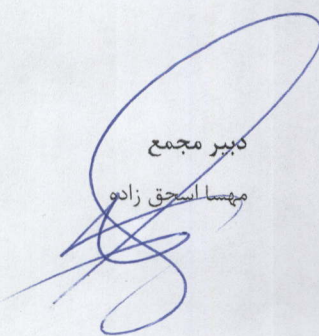 دبیر مجمع
مهسا اسحق زاده